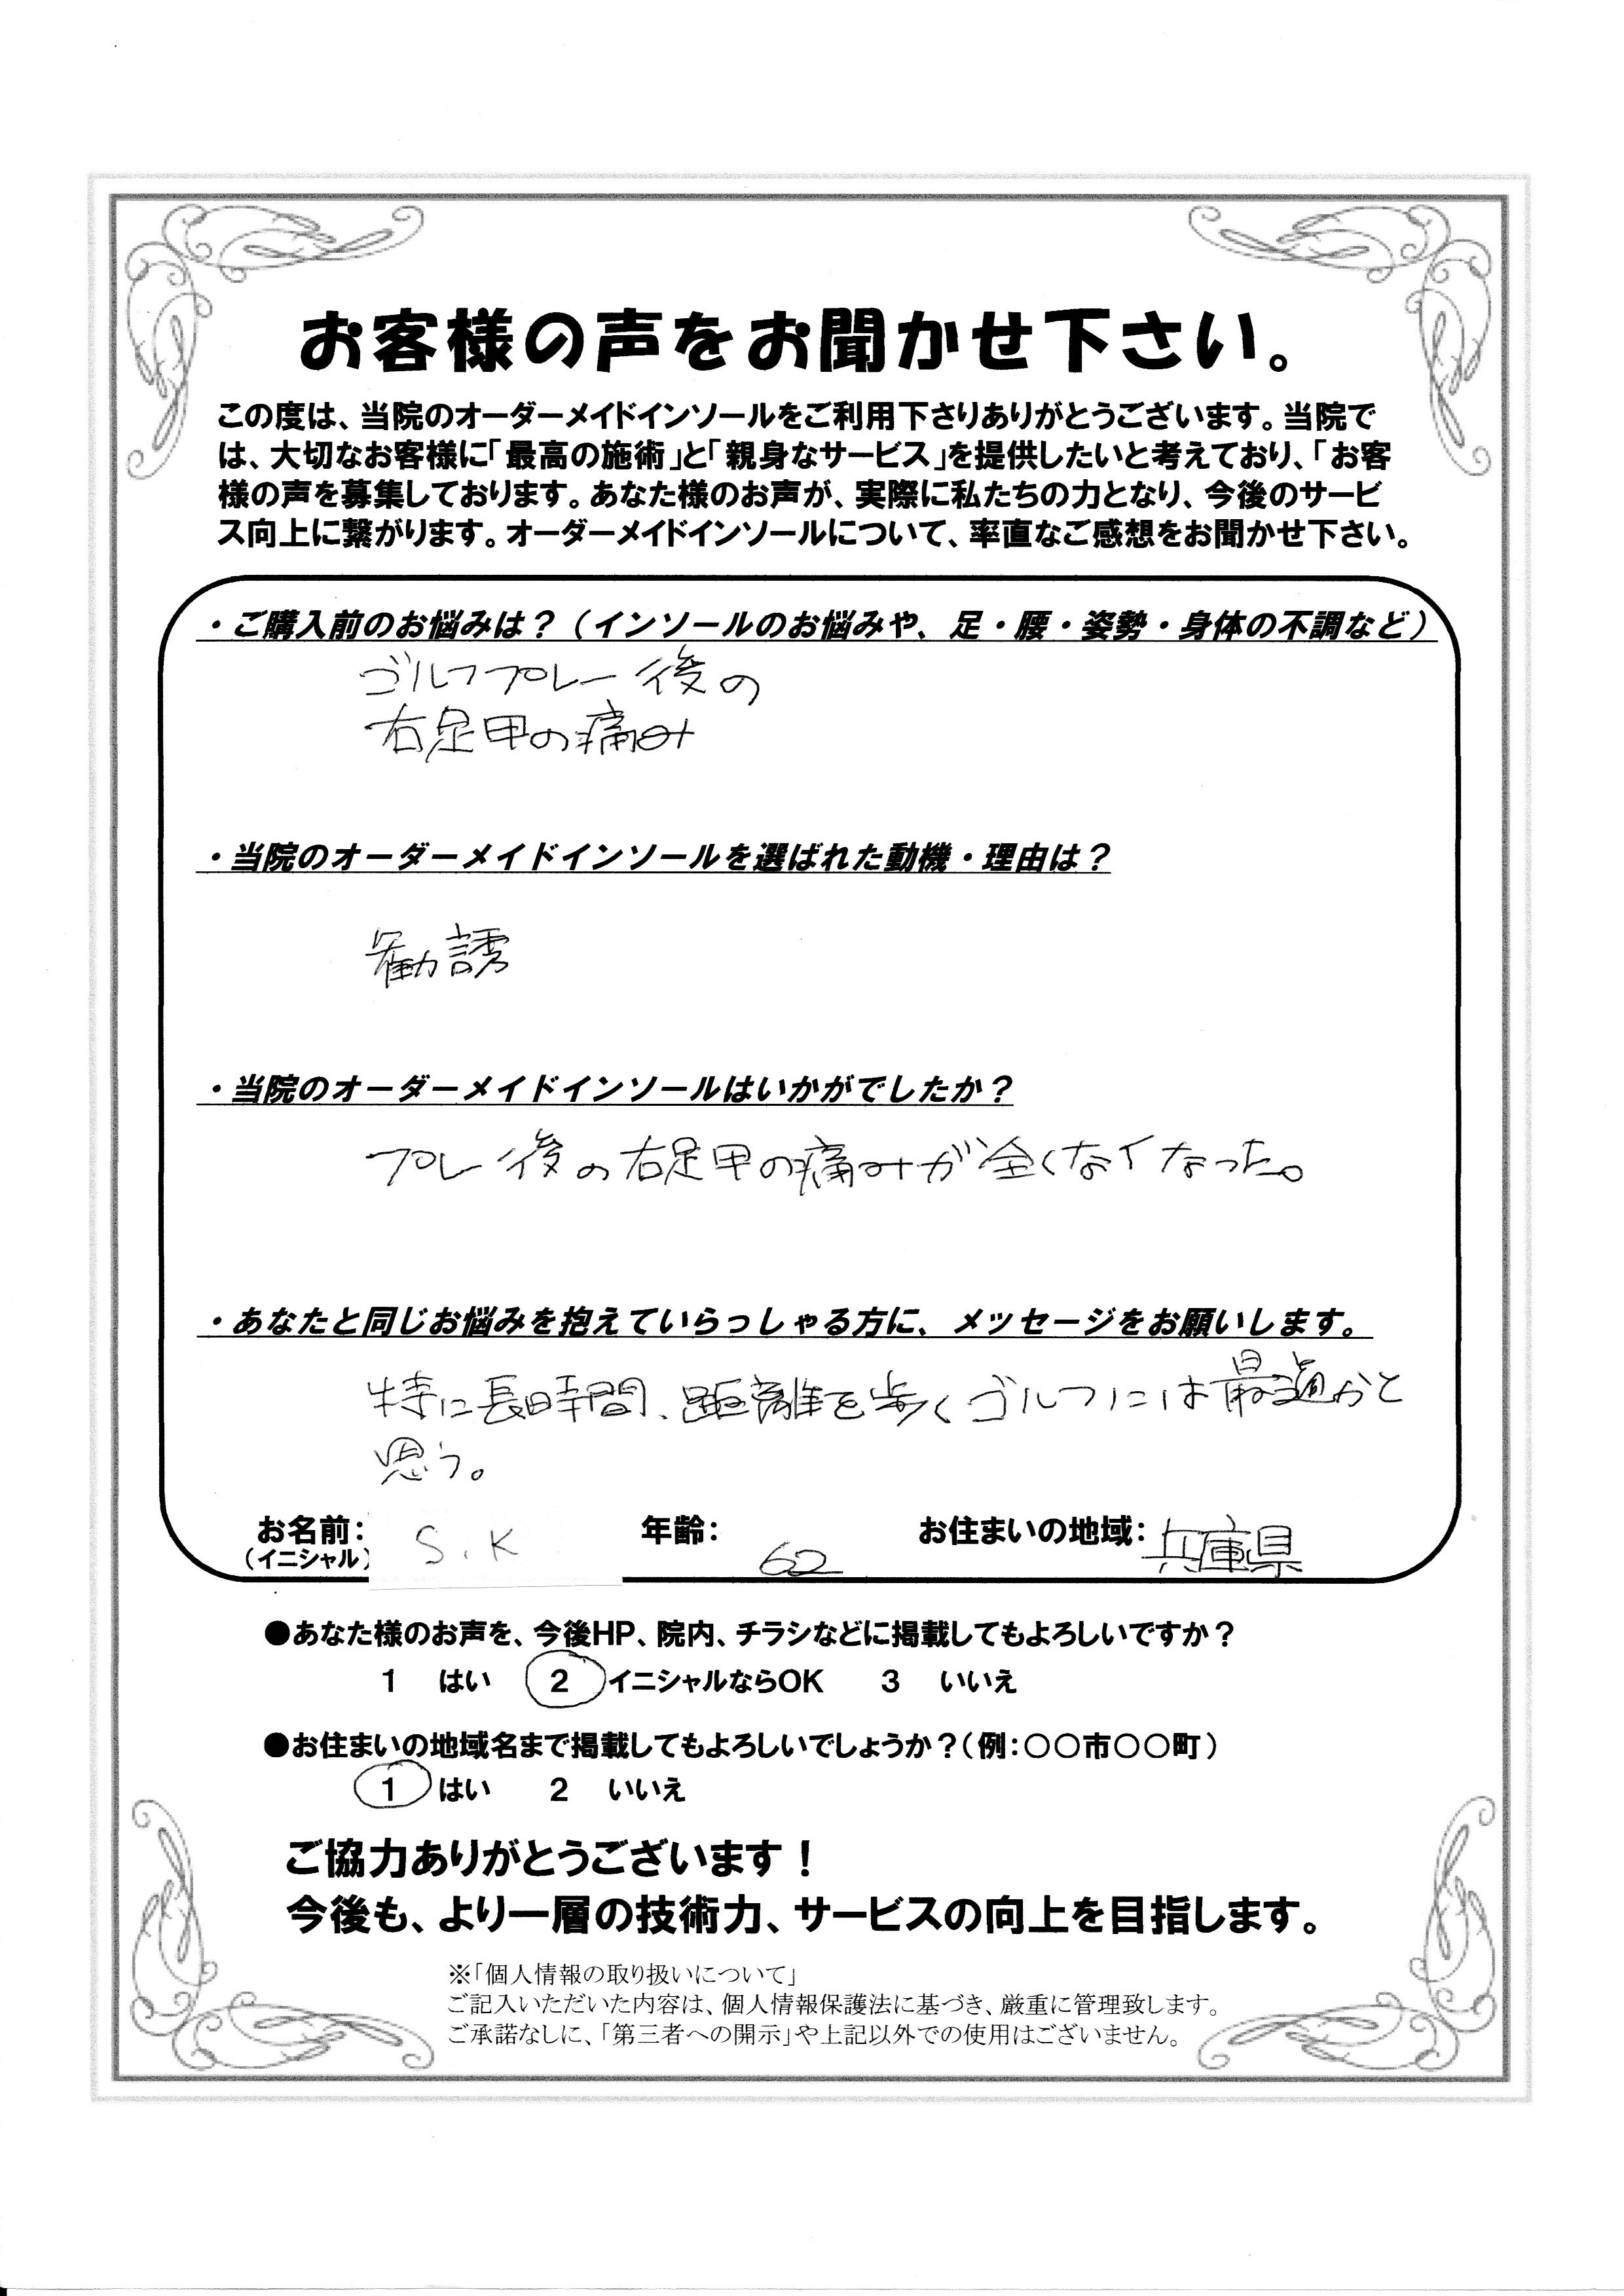 お客様の声をお聞かせ下さい。
この度は、当院のオーダーメイドインソールをご利用下さりありがとうございます。当院で
は、大切なお客様に「最高の施術」と「親身なサービス」を提供したいと考えており、「お客
様の声を募集しております。あなた様のお声が、実際に私たちの力となり、今後のサービ
ス向上に繋がります。オーダーメイドインソールについて、率直なご感想をお聞かせ下さい。
・ご購入前のお悩みは？（インソールのお悩みや、足・腰・姿勢・身体の不調など）
ゴルフプレー後の
右足甲の痛み
・当院のオーダーメイドインソールを選ばれた動機・理由は？
勧誘
・当院のオーダーメイドインソールはいかがでしたか？
プレー後の右足甲の痛みが全くなくなった。
・あなたと同じお悩みを抱えていらっしゃる方に、メッセージをお願いします。
特に長時間、距離を歩くゴルフには最適かと
思う。
お名前： S.K 年齢： 62 お住まいの地域： 兵庫県
（イニシャル）
●あなた様のお声を、今後HP、院内、チラシなどに掲載してもよろしいですか？
1 はい 2 イニシャルならOK 3 いいえ
●お住まいの地域名まで掲載してもよろしいでしょうか？（例：〇〇市〇〇町）
1 はい 2 いいえ
ご協力ありがとうございます！
今後も、より一層の技術力、サービスの向上を目指します。
※「個人情報の取り扱いについて」
ご記入いただいた内容は、個人情報保護法に基づき、厳重に管理致します。
ご承諾なしに、「第三者への開示」や上記以外での使用はございません。